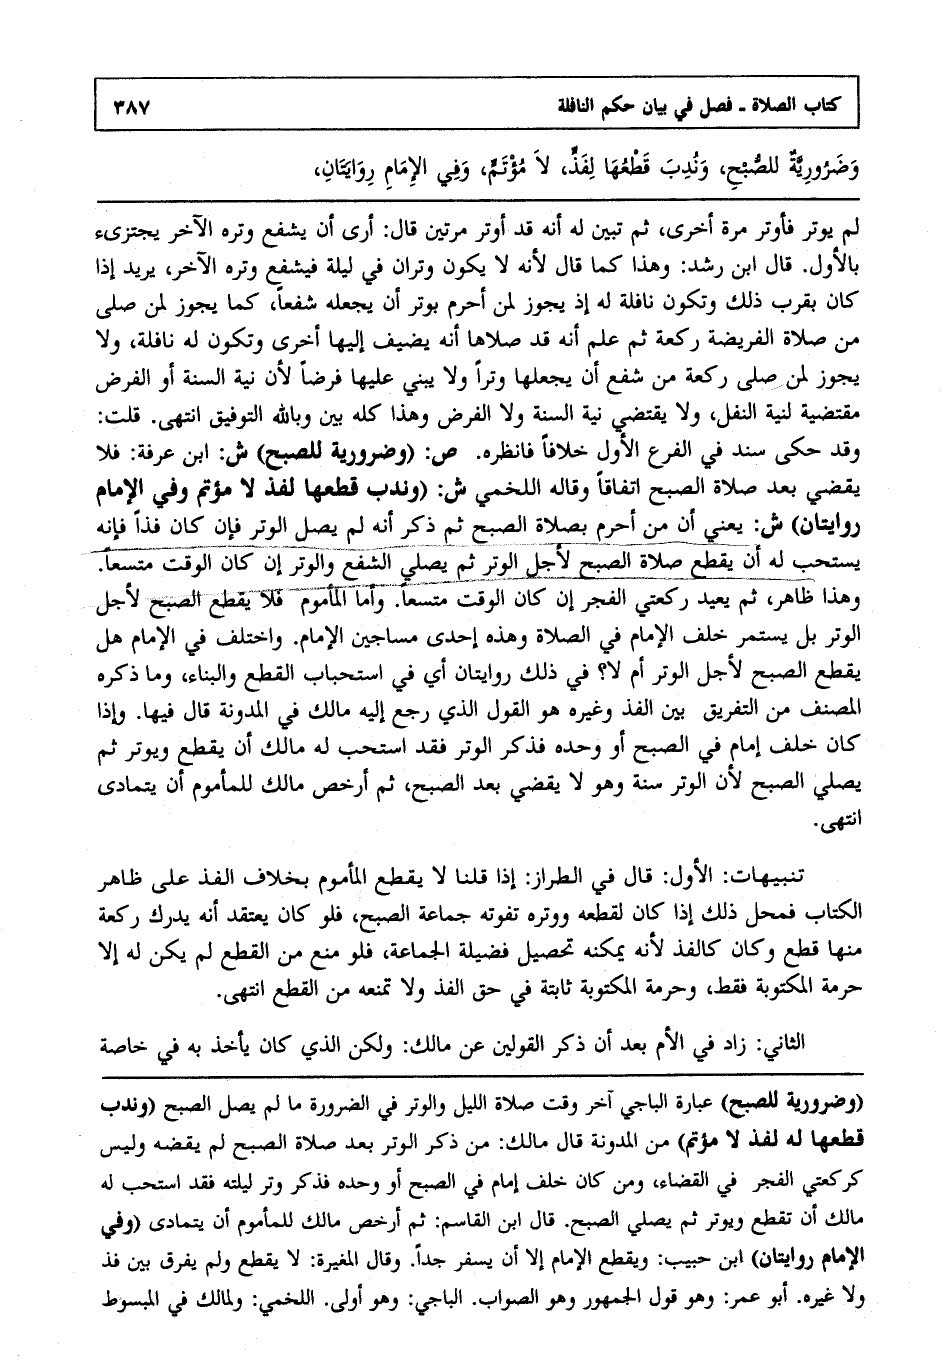 كتاب الصلاة ـ فصل في بيان حكم النافلة ٣٨٧
وَضَرُورِيَّةٌ للصُّبْحِ، وَنُدِبَ قَطْعُهَا لِفَذٍّ، لاَ مُؤْتَمٍّ، وَفِي الإِمَامِ رِوَايَتَانِ،
لم يوتر فأوتر مرة أخرى، ثم تبين له أنه قد أوتر مرتين قال: أرى أن يشفع وتره الآخر يجتزىء
بالأول. قال ابن رشد: وهذا كما قال لأنه لا يكون وتران في ليلة فيشفع وتره الآخر، يريد إذا
كان بقرب ذلك وتكون نافلة له إذ يجوز لمن أحرم بوتر أن يجعله شفعاً، كما يجوز لمن صلى
من صلاة الفريضة ركعة ثم علم أنه قد صلاها أنه يضيف إليها أخرى وتكون له نافلة، ولا
يجوز لمن صلى ركعة من شفع أن يجعلها وتراً ولا يبني عليها فرضاً لأن نية السنة أو الفرض
مقتضية لنية النفل، ولا يقتضي نية السنة ولا الفرض وهذا كله بين وبالله التوفيق انتهى. قلت:
وقد حكى سند في الفرع الأول خلافاً فانظره. ص: (وضرورية للصبح) ش: ابن عرفة: فلا
يقضي بعد صلاة الصبح اتفاقاً وقاله اللخمي ش: (وندب قطعها لفذ لا مؤتم وفي الإمام
روايتان) ش: يعني أن من أحرم بصلاة الصبح ثم ذكر أنه لم يصل الوتر فإن كان فذاً فإنه
يستحب له أن يقطع صلاة الصبح لأجل الوتر ثم يصلي الشفع والوتر إن كان الوقت متسعاً.
وهذا ظاهر، ثم يعيد ركعتي الفجر إن كان الوقت متسعاً. وأما المأموم فلا يقطع الصبح لأجل
الوتر بل يستمر خلف الإمام في الصلاة وهذه إحدى مساجين الإمام. واختلف في الإمام هل
يقطع الصبح لأجل الوتر أم لا؟ في ذلك روايتان أي في استحباب القطع والبناء، وما ذكره
المصنف من التفريق بين الفذ وغيره هو القول الذي رجع إليه مالك في المدونة قال فيها. وإذا
كان خلف إمام في الصبح أو وحده فذكر الوتر فقد استحب له مالك أن يقطع ويوتر ثم
يصلي الصبح لأن الوتر سنة وهو لا يقضي بعد الصبح، ثم أرخص مالك للمأموم أن يتمادى
انتهى.
تنبيهات: الأول: قال في الطراز: إذا قلنا لا يقطع المأموم بخلاف الفذ على ظاهر
الكتاب فمحل ذلك إذا كان لقطعه ووتره تفوته جماعة الصبح، فلو كان يعتقد أنه يدرك ركعة
منها قطع وكان كالفذ لأنه يمكنه تحصيل فضيلة الجماعة، فلو منع من القطع لم يكن له إلا
حرمة المكتوبة فقط، وحرمة المكتوبة ثابتة في حق الفذ ولا تمنعه من القطع انتهى.
الثاني: زاد في الأم بعد أن ذكر القولين عن مالك: ولكن الذي كان يأخذ به في خاصة
(وضرورية للصبح) عبارة الباجي آخر وقت صلاة الليل والوتر في الضرورة ما لم يصل الصبح (وندب
قطعها له لفذ لا مؤتم) من المدونة قال مالك: من ذكر الوتر بعد صلاة الصبح لم يقضه وليس
كركعتي الفجر في القضاء، ومن كان خلف إمام في الصبح أو وحده فذكر وتر ليلته فقد استحب له
مالك أن تقطع ويوتر ثم يصلي الصبح. قال ابن القاسم: ثم أرخص مالك للمأموم أن يتمادى (وفي
الإمام روايتان) ابن حبيب: ويقطع الإمام إلا أن يسفر جداً. وقال المغيرة: لا يقطع ولم يفرق بين فذ
ولا غيره. أبو عمر: وهو قول الجمهور وهو الصواب. الباجي: وهو أولى. اللخمي: ولمالك في المبسوط